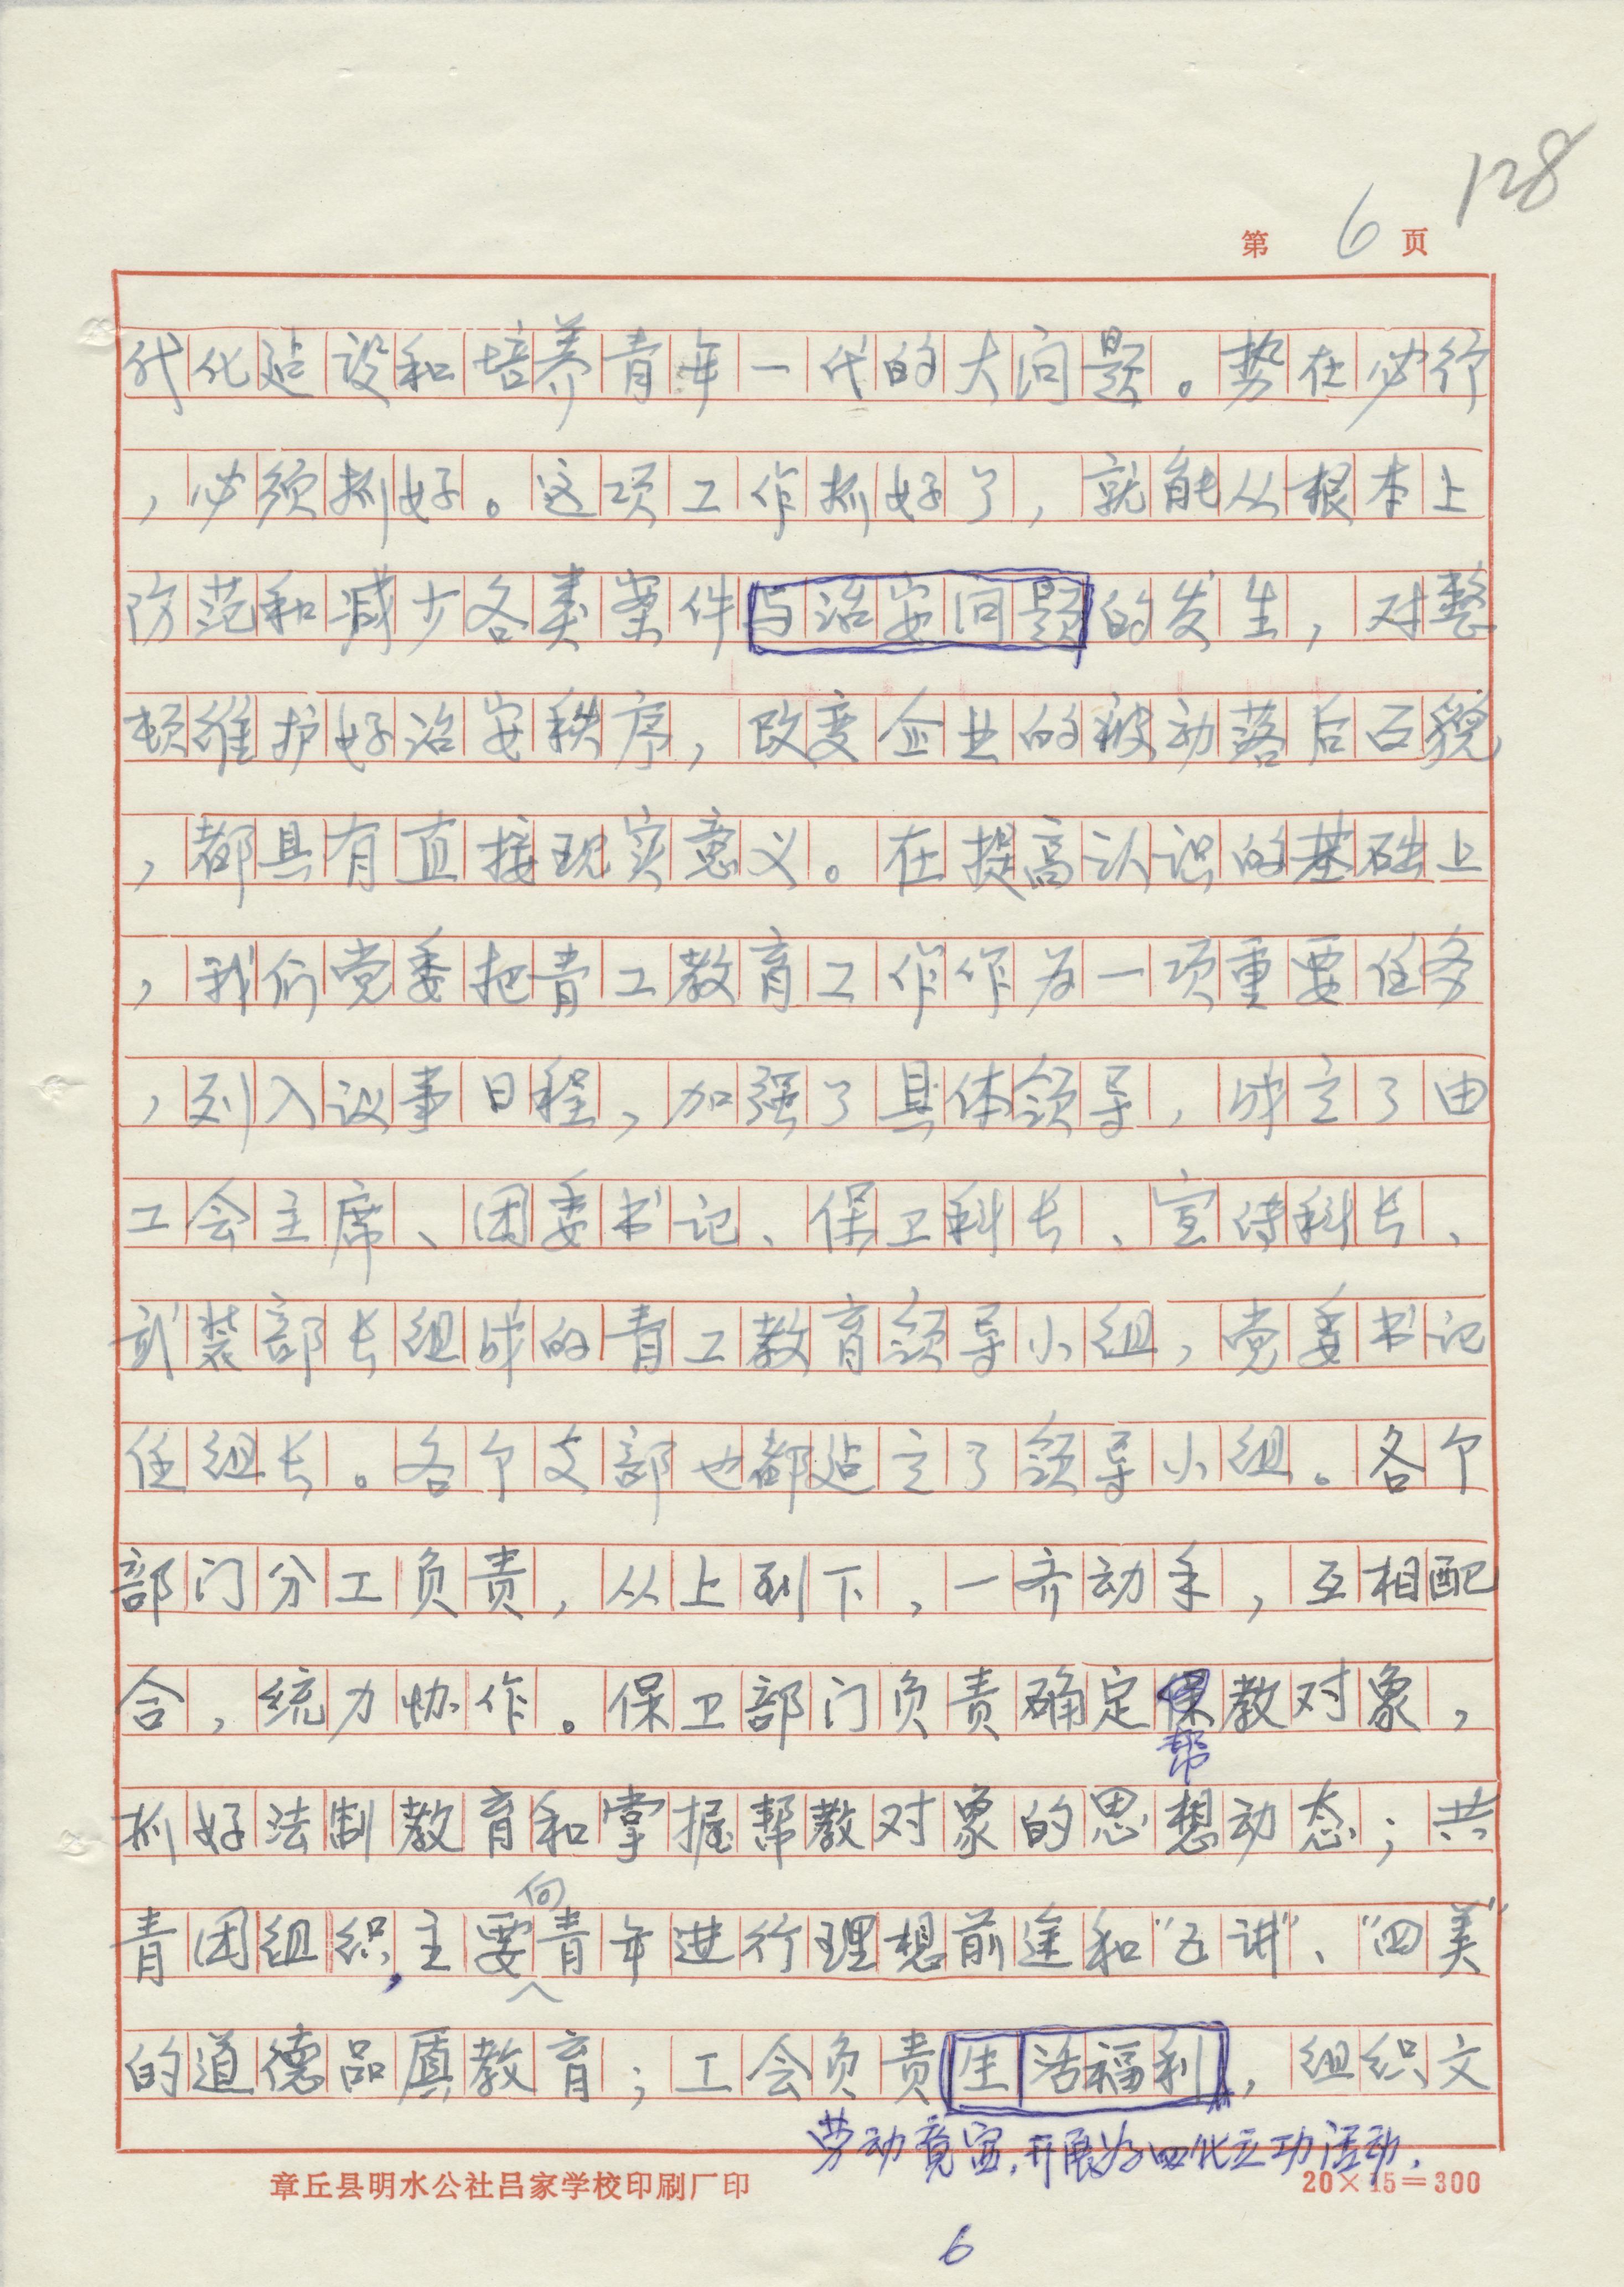 128
第 6 页
代化建设和培养青年一代的大问题。势在必行
，必须抓好。这项工作抓好了，就能从根本上
防范和减少各类案件与治安问题的发生，对整
顿维护好治安秩序，改变企业的被动落后面貌
，都具有直接现实意义。在提高认识的基础上
，我们党委把青工教育工作作为一项重要任务
，列入议事日程，加强了具体领导，成立了由
工会主席、团委书记、保卫科长、宣传科长、
武装部长组成的青工教育领导小组，党委书记
任组长。各个支部也都建立了领导小组。各个
部门分工负责，从上到下，一齐动手，互相配
合，统力协作。保卫部门负责确定保教对象，
帮
抓好法制教育和掌握帮教对象的思想动态；共
向
青团组织，主要青年进行理想前途和“五讲”、“四美”
的道德品质教育；工会负责生活福利，组织文
劳动竞赛，开展为四化立功活动，
章丘县明水公社吕家学校印刷厂印 20×15=300
6